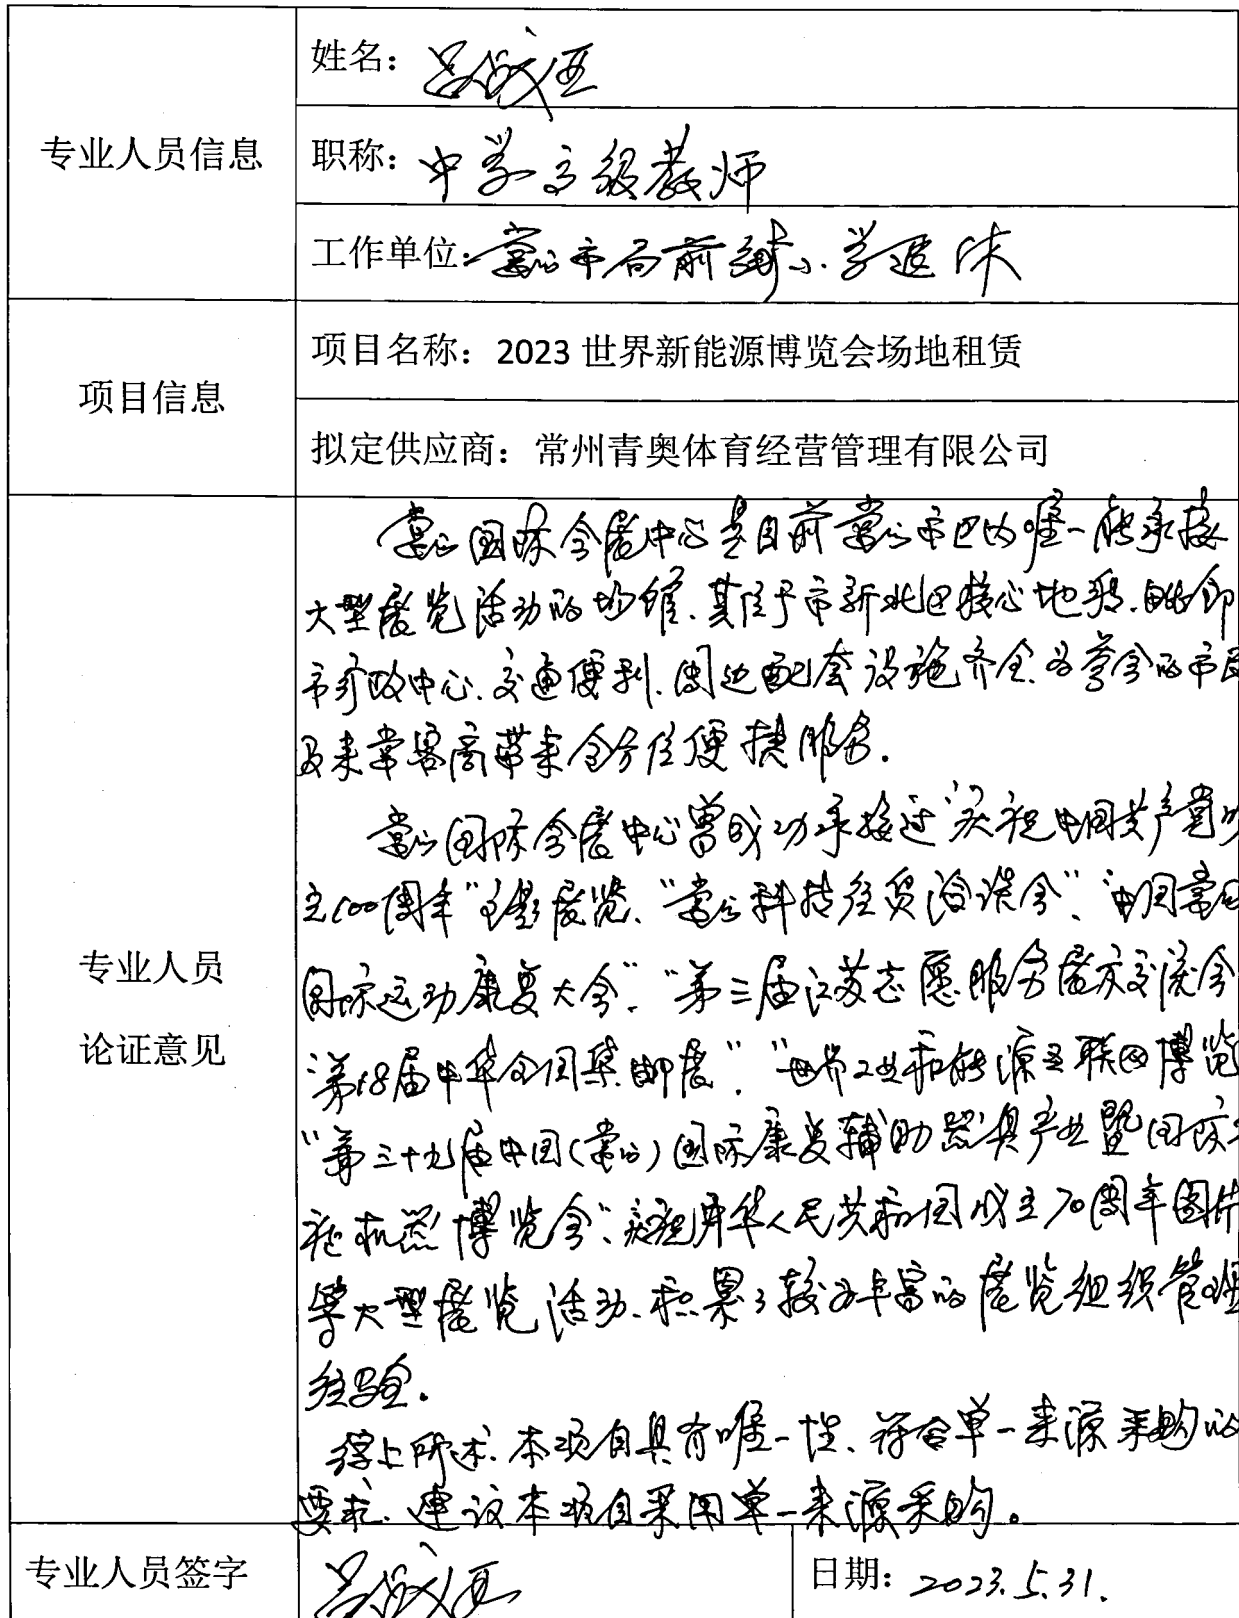 专业人员信息
姓名：
职称：中学高级教师
工作单位：常州市局前街小学退休
项目信息
项目名称：2023 世界新能源博览会场地租赁
拟定供应商：常州青奥体育经营管理有限公司
专业人员
论证意见
常州国际会展中心是目前常州市区内唯一能承接
大型展览活动的场馆，其位于市新北区核心地段，毗邻
市行政中心，交通便利，周边配套设施齐全，为参会的市民
及来常客商带来全方位便捷服务。
常州国际会展中心曾成功承接过“庆祝中国共产党成
立100周年”主题展览、“常州科技经贸洽谈会”、“中国常州
国际运动康复大会”、“第三届江苏志愿服务展示交流会
“第18届中华全国集邮展”、“世界工业和能源互联网博览
“第三十九届中国（常州）国际康复辅助器具产业暨国际
祉机器博览会”、庆祝中华人民共和国成立70周年图片
等大型展览活动，积累了较为丰富的展览组织管理
经验。
综上所述，本项目具有唯一性，符合单一来源采购的
要求，建议本项目采用单一来源采购。
专业人员签字
日期：2023.5.31.